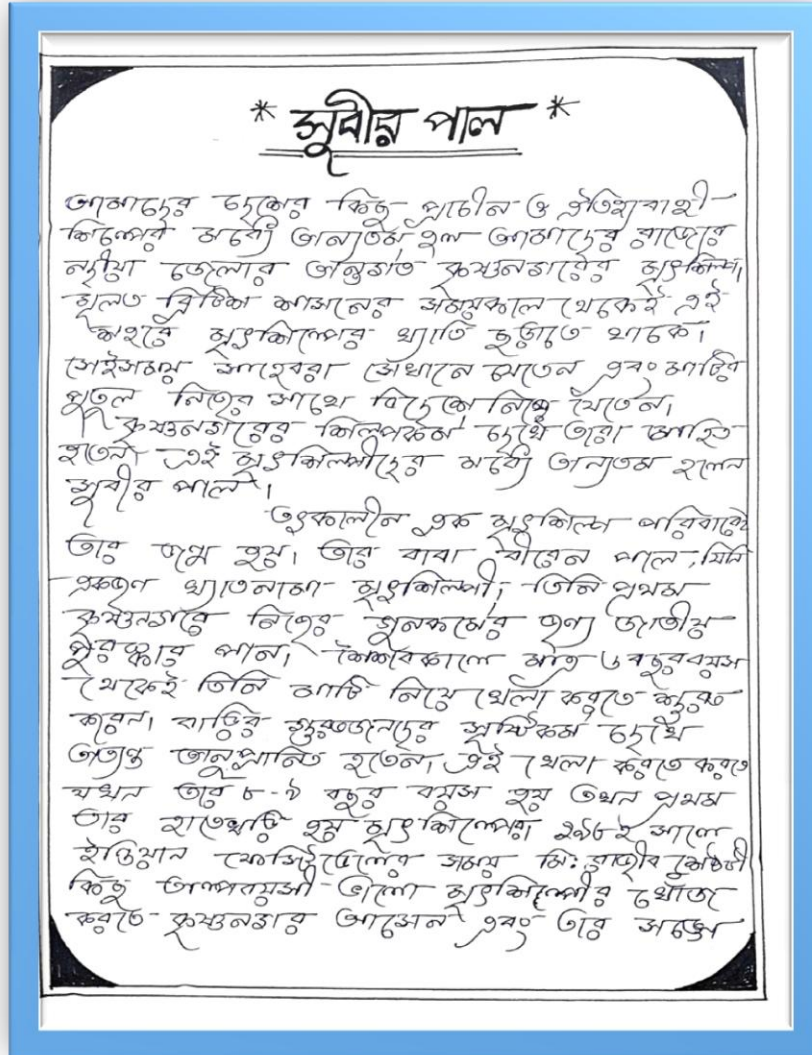 * সুবীর পাল *
আমাদের দেশের কিছু প্রাচীন ও ঐতিহ্যবাহী
শিল্পের মধ্যে অন্যতম হল আমাদের রাজ্যের
নদীয়া জেলার অন্তর্গত কৃষ্ণনগরের মৃৎশিল্প।
মূলত ব্রিটিশ শাসনের সময়কাল থেকেই এই
শহরে মৃৎশিল্পের খ্যাতি ছড়াতে থাকে।
সেইসময় সাহেবরা সেখানে যেতেন এবং মাটির
পুতুল নিজের সাথে বিদেশে নিয়ে যেতেন।
কৃষ্ণনগরের শিল্পকর্ম দেখে তারা মোহিত
হতেন। এই মৃৎশিল্পীদের মধ্যে অন্যতম হলেন
সুবীর পাল।
তৎকালীন এক মৃৎশিল্প পরিবারে
তার জন্ম হয়। তার বাবা বীরেন পাল, যিনি
একজন খ্যাতনামা মৃৎশিল্পী, তিনি প্রথম
কৃষ্ণনগরে নিজের গুনকর্মের জন্য জাতীয়
পুরস্কার পান। শৈশবকালে মাত্র ৬ বছর বয়স
থেকেই তিনি মাটি নিয়ে খেলা করতে শুরু
করেন। বাড়ির গুরুজনদের সৃষ্টিকর্ম দেখে
অত্যন্ত অনুপ্রানিত হতেন। এই খেলা করতে করতে
যখন তার ৮-৯ বছর বয়স হয় তখন প্রথম
তার হাতেখড়ি হয় মৃৎ শিল্পের। সালে
ইন্ডিয়ান ফেস্টিভেলের সময় মি: রাজীব শেঠজী
কিছু অল্পবয়সী ভালো মৃৎশিল্পীর খোঁজ
করতে কৃষ্ণনগর আসেন এবং তার সঙ্গে